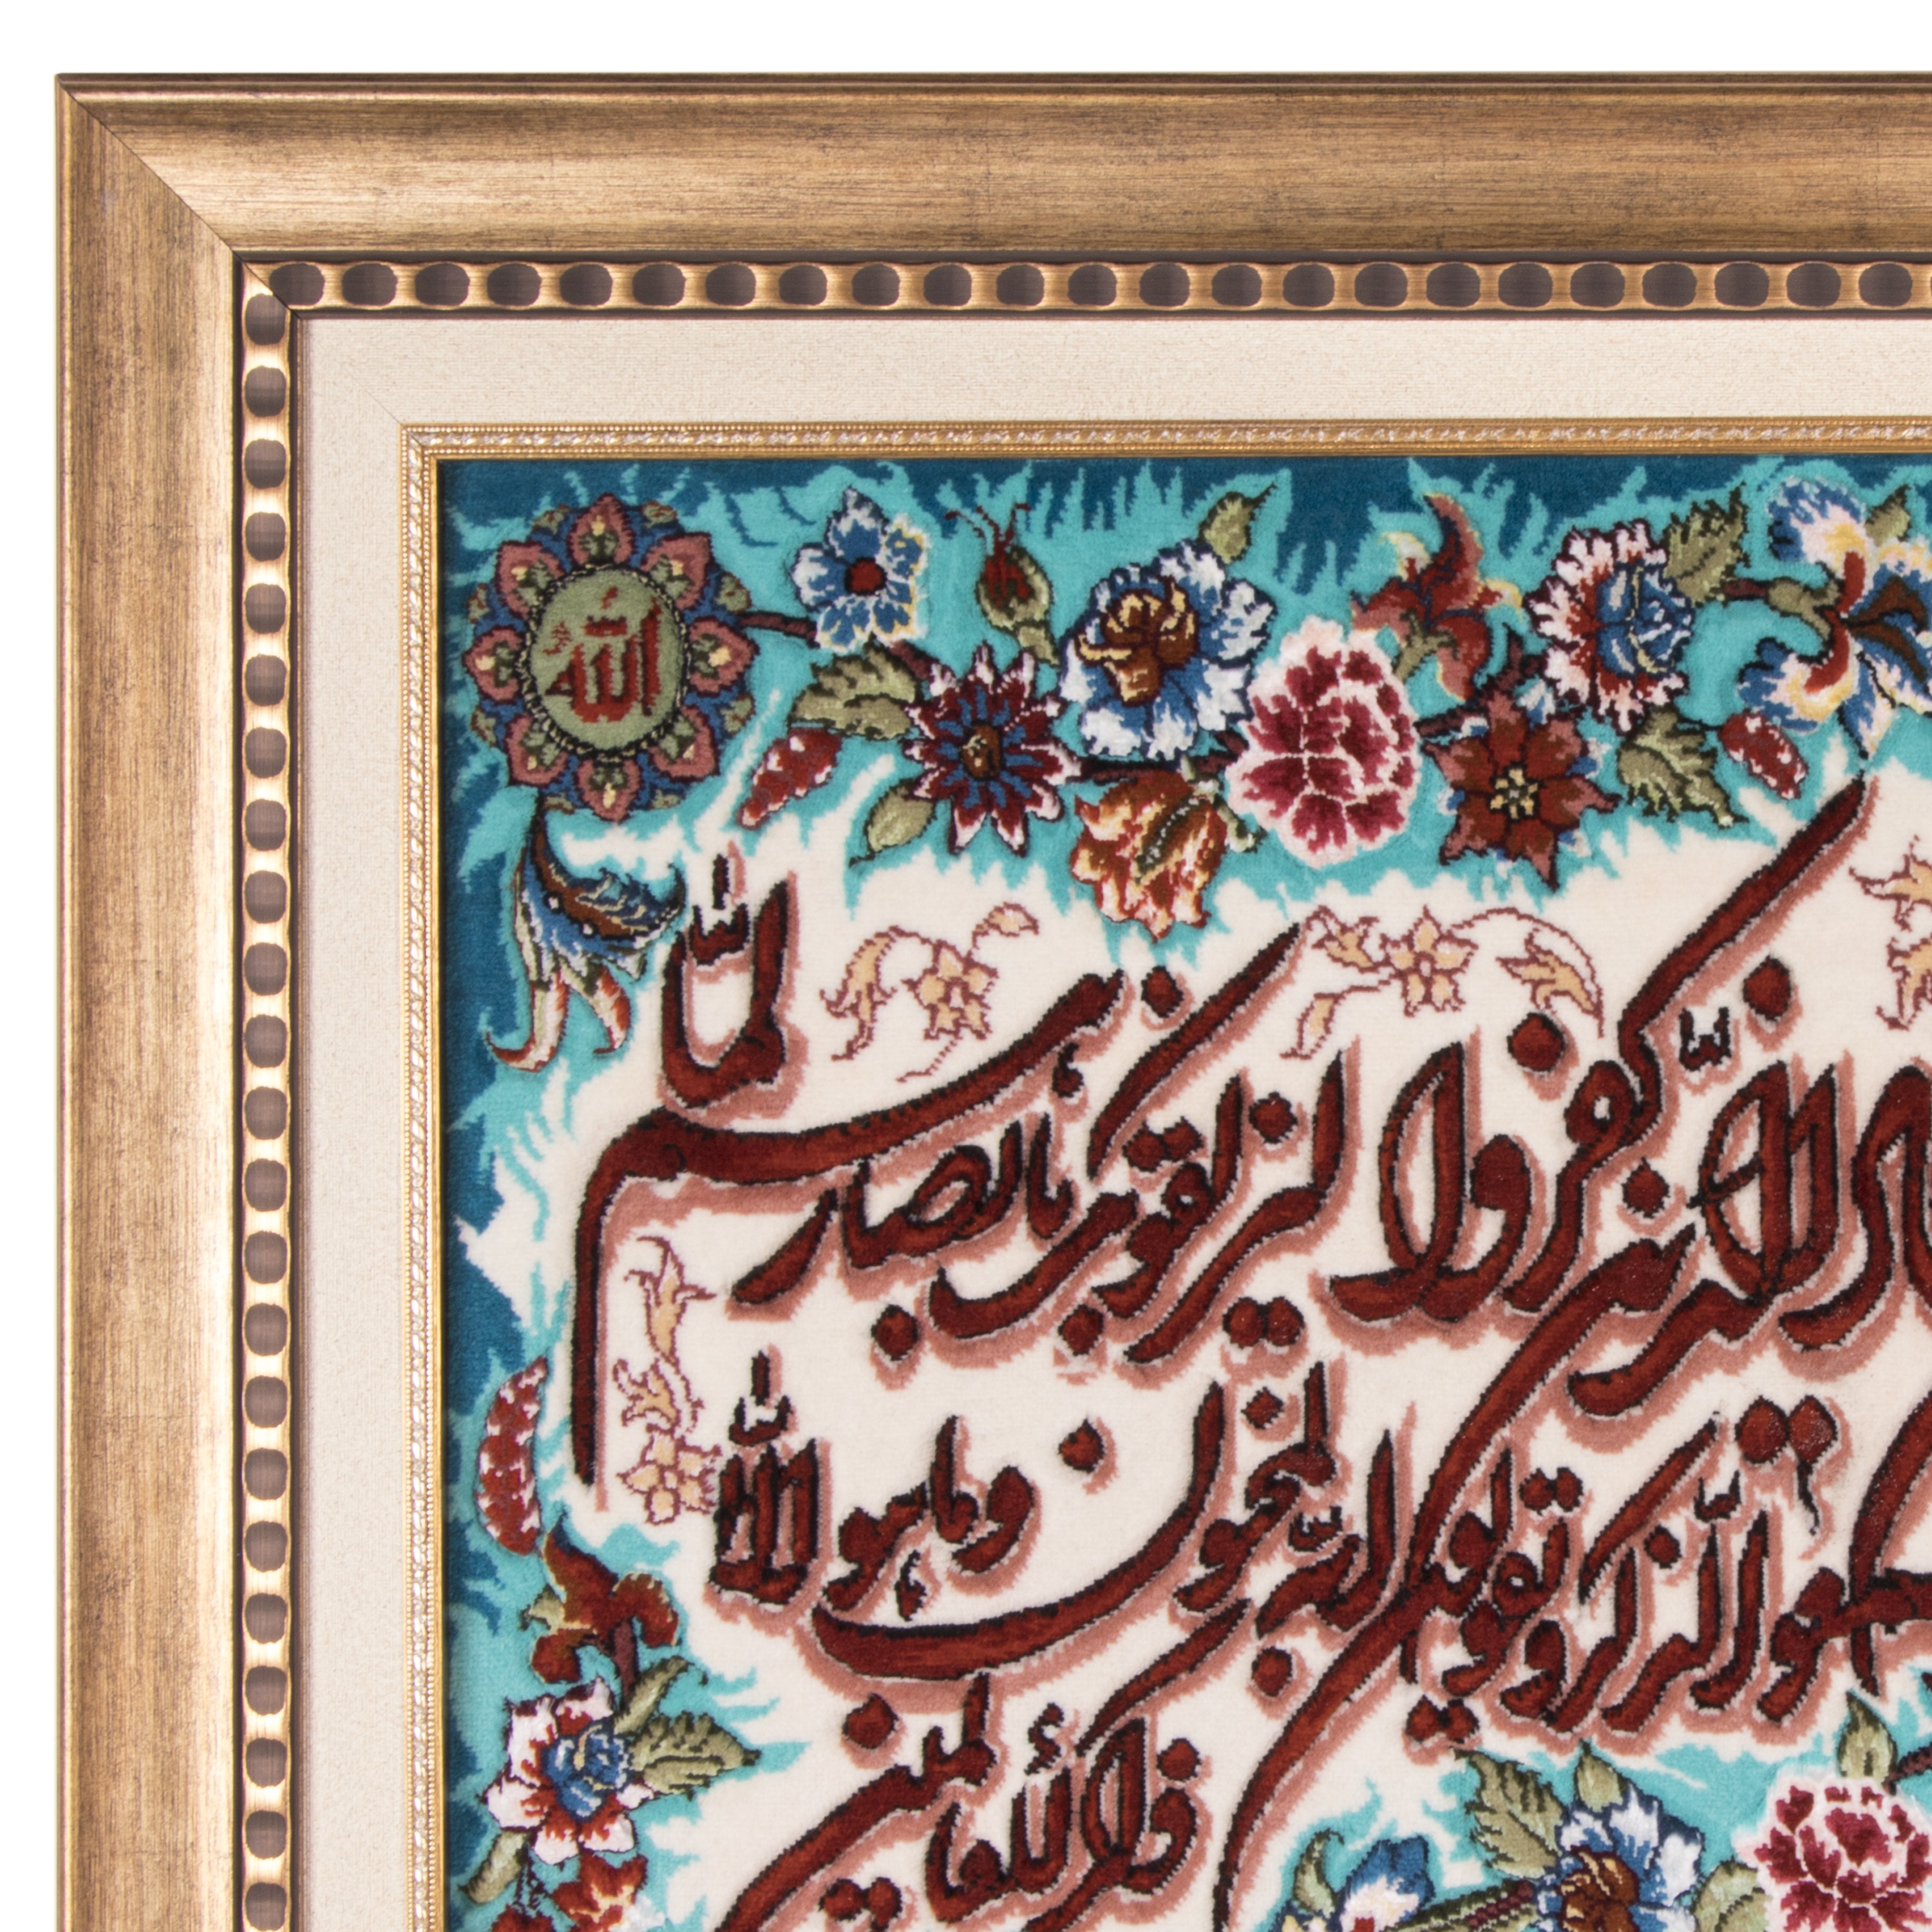 الله
الذین کفروا لیزلقونک بابصارهم لما
سمعوا الذکر ویقولون انه لمجنون وما هو الا
ذکر للعالمین